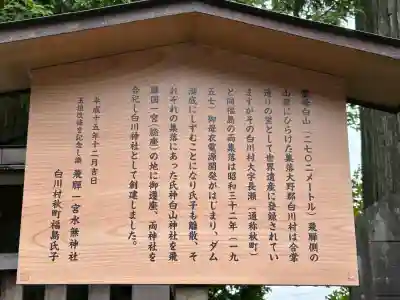 霊峰白山(二七〇二メートル)飛騨側の
山麓にひらけた集落大野郡白川村は合掌
造りの里として世界遺産に登録されてい
ますがその白川村大字長瀬(通称秋町)
と同福島の両集落は昭和三十二年(一九
五七)御母衣電源開発がはじまり、ダム
湖底にしずむことになり氏子も離散、そ
れぞれの集落にあった氏神白山神社を飛
騨国一宮(総座)の地に御遷座、両神社を
合祀し白川神社として創建しました。
平成十五年十二月吉日
玉垣改修を記念し誌
飛騨一宮水無神社
白川村秋町福島氏子